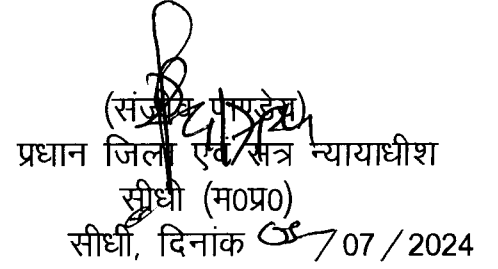 (संजीव पाण्डेय)
प्रधान जिला एवं सत्र न्यायाधीश
सीधी (म0प्र0)
सीधी, दिनांक 05/07/2024